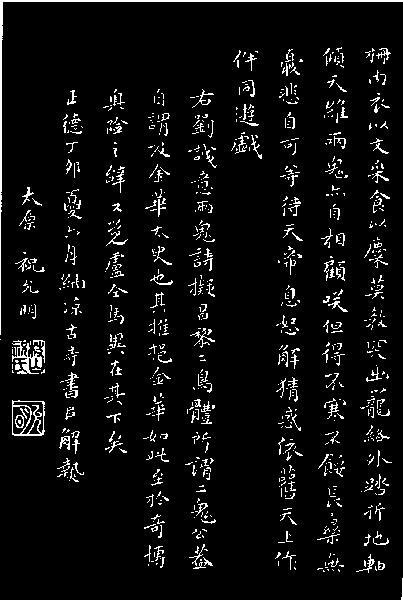 柵內衣以文采食以麋莫教突出籠絡外踏折地軸
傾天維兩鬼亦自相顧咲但得不寒不餒長樂無
憂悲自可等待天帝息怒解猜惑依舊天上作
伴同遊戲
右劉誠意兩鬼詩擬昌黎二鳥體所謂二鬼公蓋
自謂及金華太史也其推挹金華如此至於奇博
奥險之辭又覺盧仝馬異在其下矣
正德丁卯夏六月納涼古寺書已解熱
太原祝允明